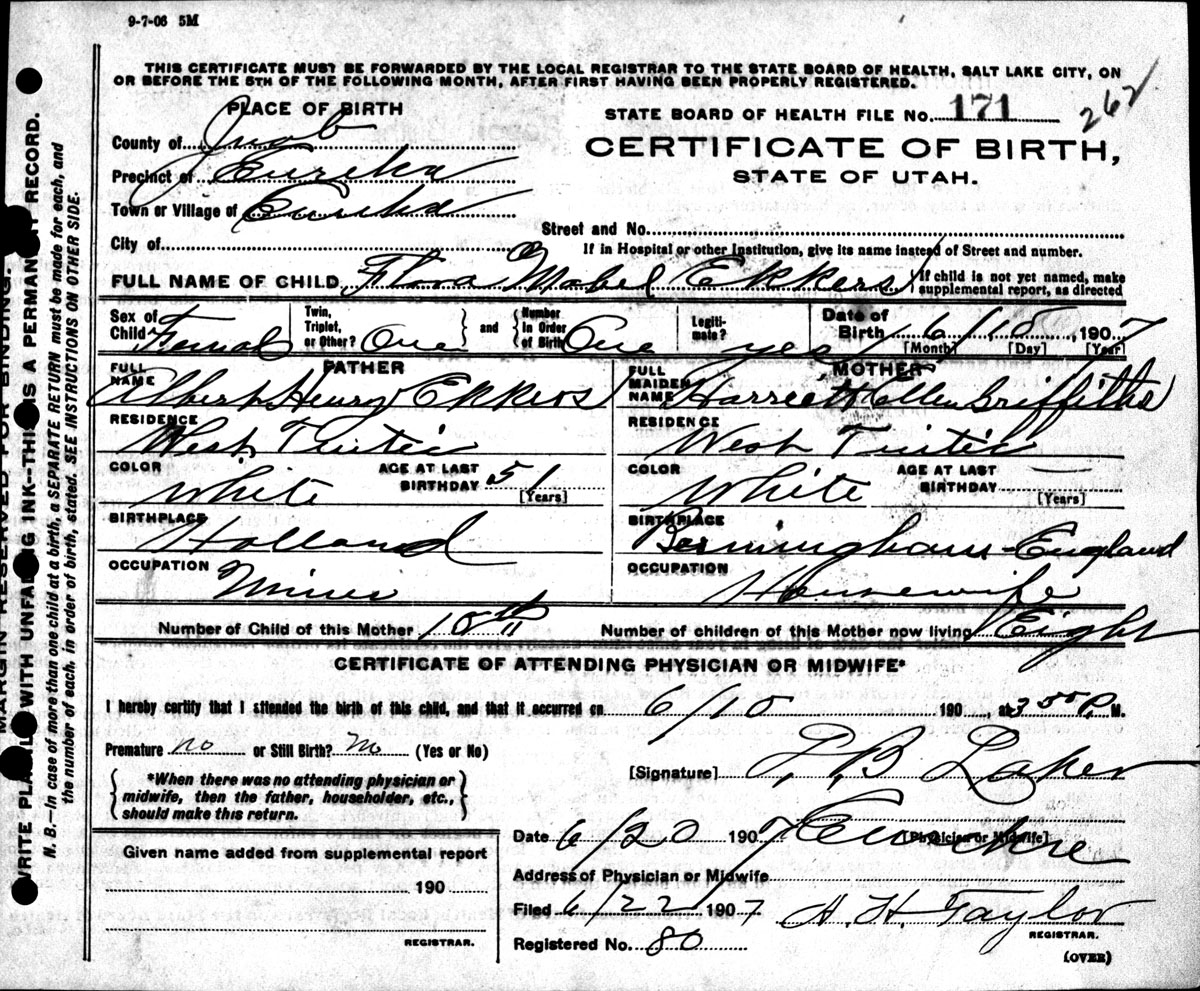 9-7-06 5M
THIS CERTIFICATE MUST BE FORWARDED BY THE LOCAL REGISTRAR TO THE STATE BOARD OF HEALTH, SALT LAKE CITY, ON
OR BEFORE THE 5TH OF THE FOLLOWING MONTH, AFTER FIRST HAVING BEEN PROPERLY REGISTERED.
PLACE OF BIRTH
STATE BOARD OF HEALTH FILE NO. 171 262
County of Juab
CERTIFICATE OF BIRTH,
STATE OF UTAH.
Precinct of Eureka
Town or Village of Eureka
Street and No.
City of
If in Hospital or other Institution, give its name instead of Street and number.
FULL NAME OF CHILD Flora Mabel Ekkers { If child is not yet named, make
supplemental report, as directed
Sex of Child Female
Twin, Triplet, or Other? One } and { Number in Order of Birth One
Legiti-mate? yes
Date of Birth 6 / 15, 1907
[Month] [Day] [Year]
FATHER
FULL NAME Albert Henry Ekkers
RESIDENCE West Tintic
COLOR White AGE AT LAST BIRTHDAY 51 [Years]
BIRTHPLACE Holland
OCCUPATION Miner
MOTHER
FULL MAIDEN NAME Harriet Ellen Griffiths
RESIDENCE West Tintic
COLOR White AGE AT LAST BIRTHDAY — [Years]
BIRTHPLACE Birmingham-England
OCCUPATION Housewife
Number of Child of this Mother 10th Number of children of this Mother now living Eight
CERTIFICATE OF ATTENDING PHYSICIAN OR MIDWIFE*
I hereby certify that I attended the birth of this child, and that it occurred on 6/15 190 , at 3 P. M.
Premature no or Still Birth? no (Yes or No)
*When there was no attending physician or
midwife, then the father, householder, etc.,
should make this return.
[Signature]
[Physician or Midwife]
Date 6/20 1907
Address of Physician or Midwife
Filed 6/22 1907 A. H. Taylor
REGISTRAR.
Registered No. 80
(OVER)
Given name added from supplemental report
190
REGISTRAR.
MARGIN RESERVED FOR BINDING.
WRITE PLAINLY WITH UNFADING INK--THIS IS A PERMANENT RECORD.
N. B.—In case of more than one child at a birth, a SEPARATE RETURN must be made for each, and
the number of each, in order of birth, stated. SEE INSTRUCTIONS ON OTHER SIDE.